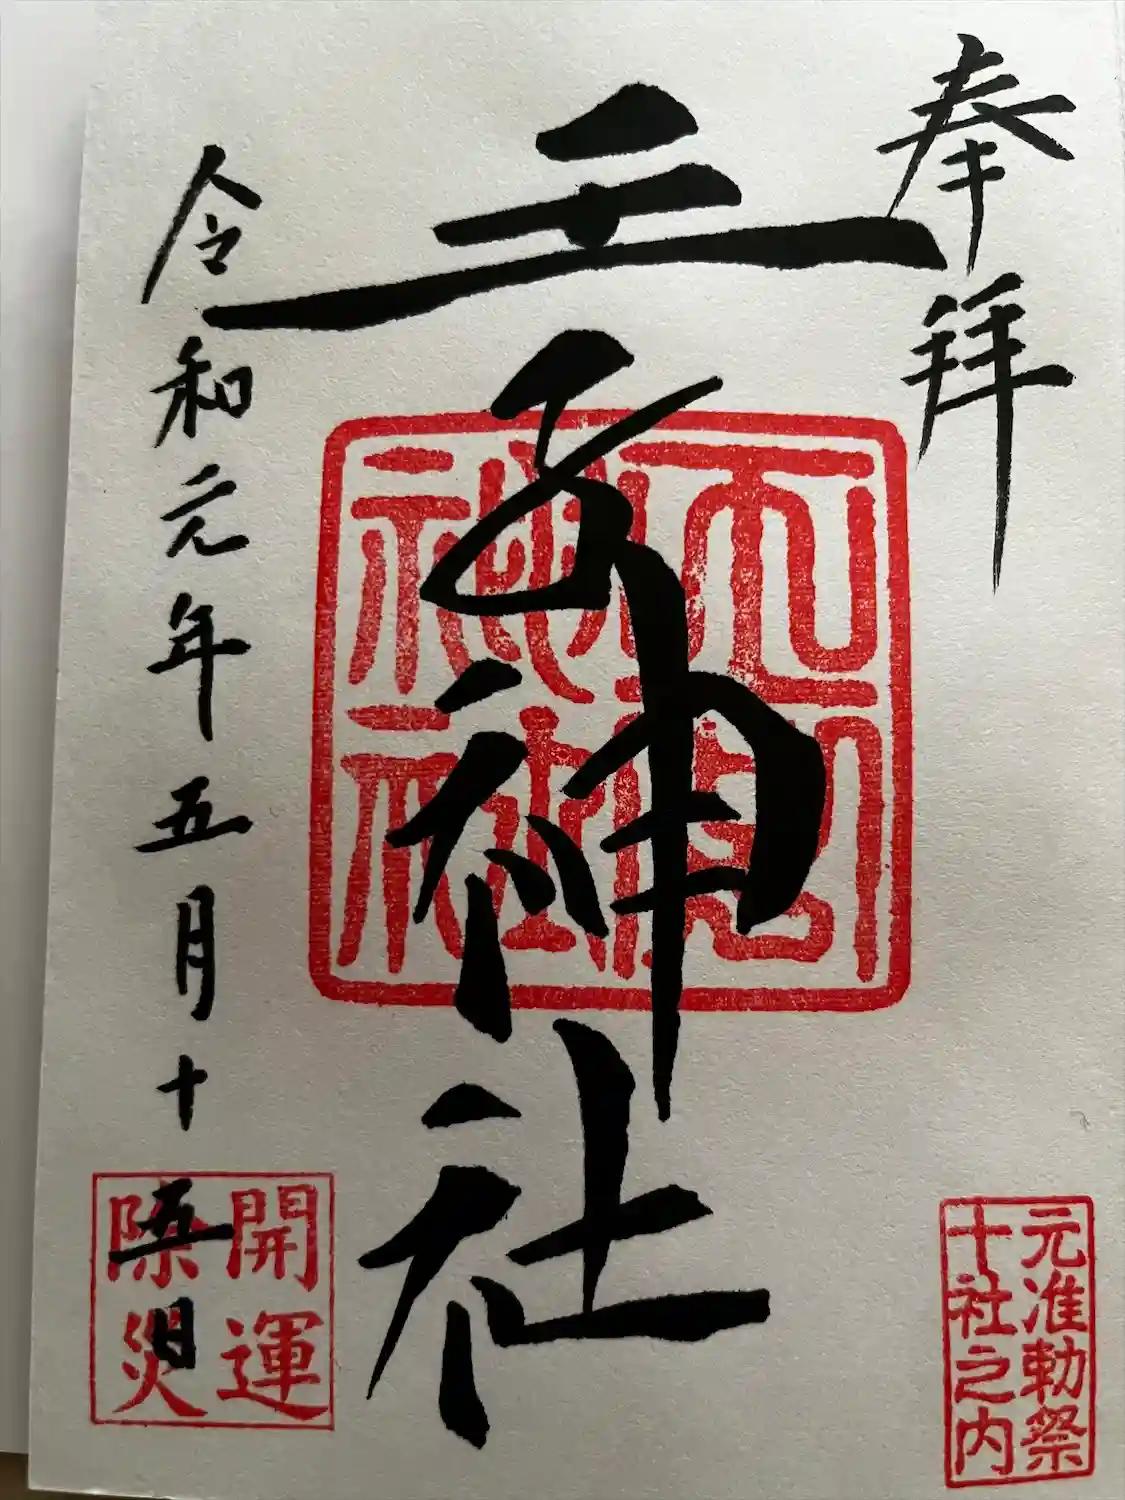 奉拝
王子神社
令和元年五月十五日
神社
元准勅祭
十社之内
開運
除災